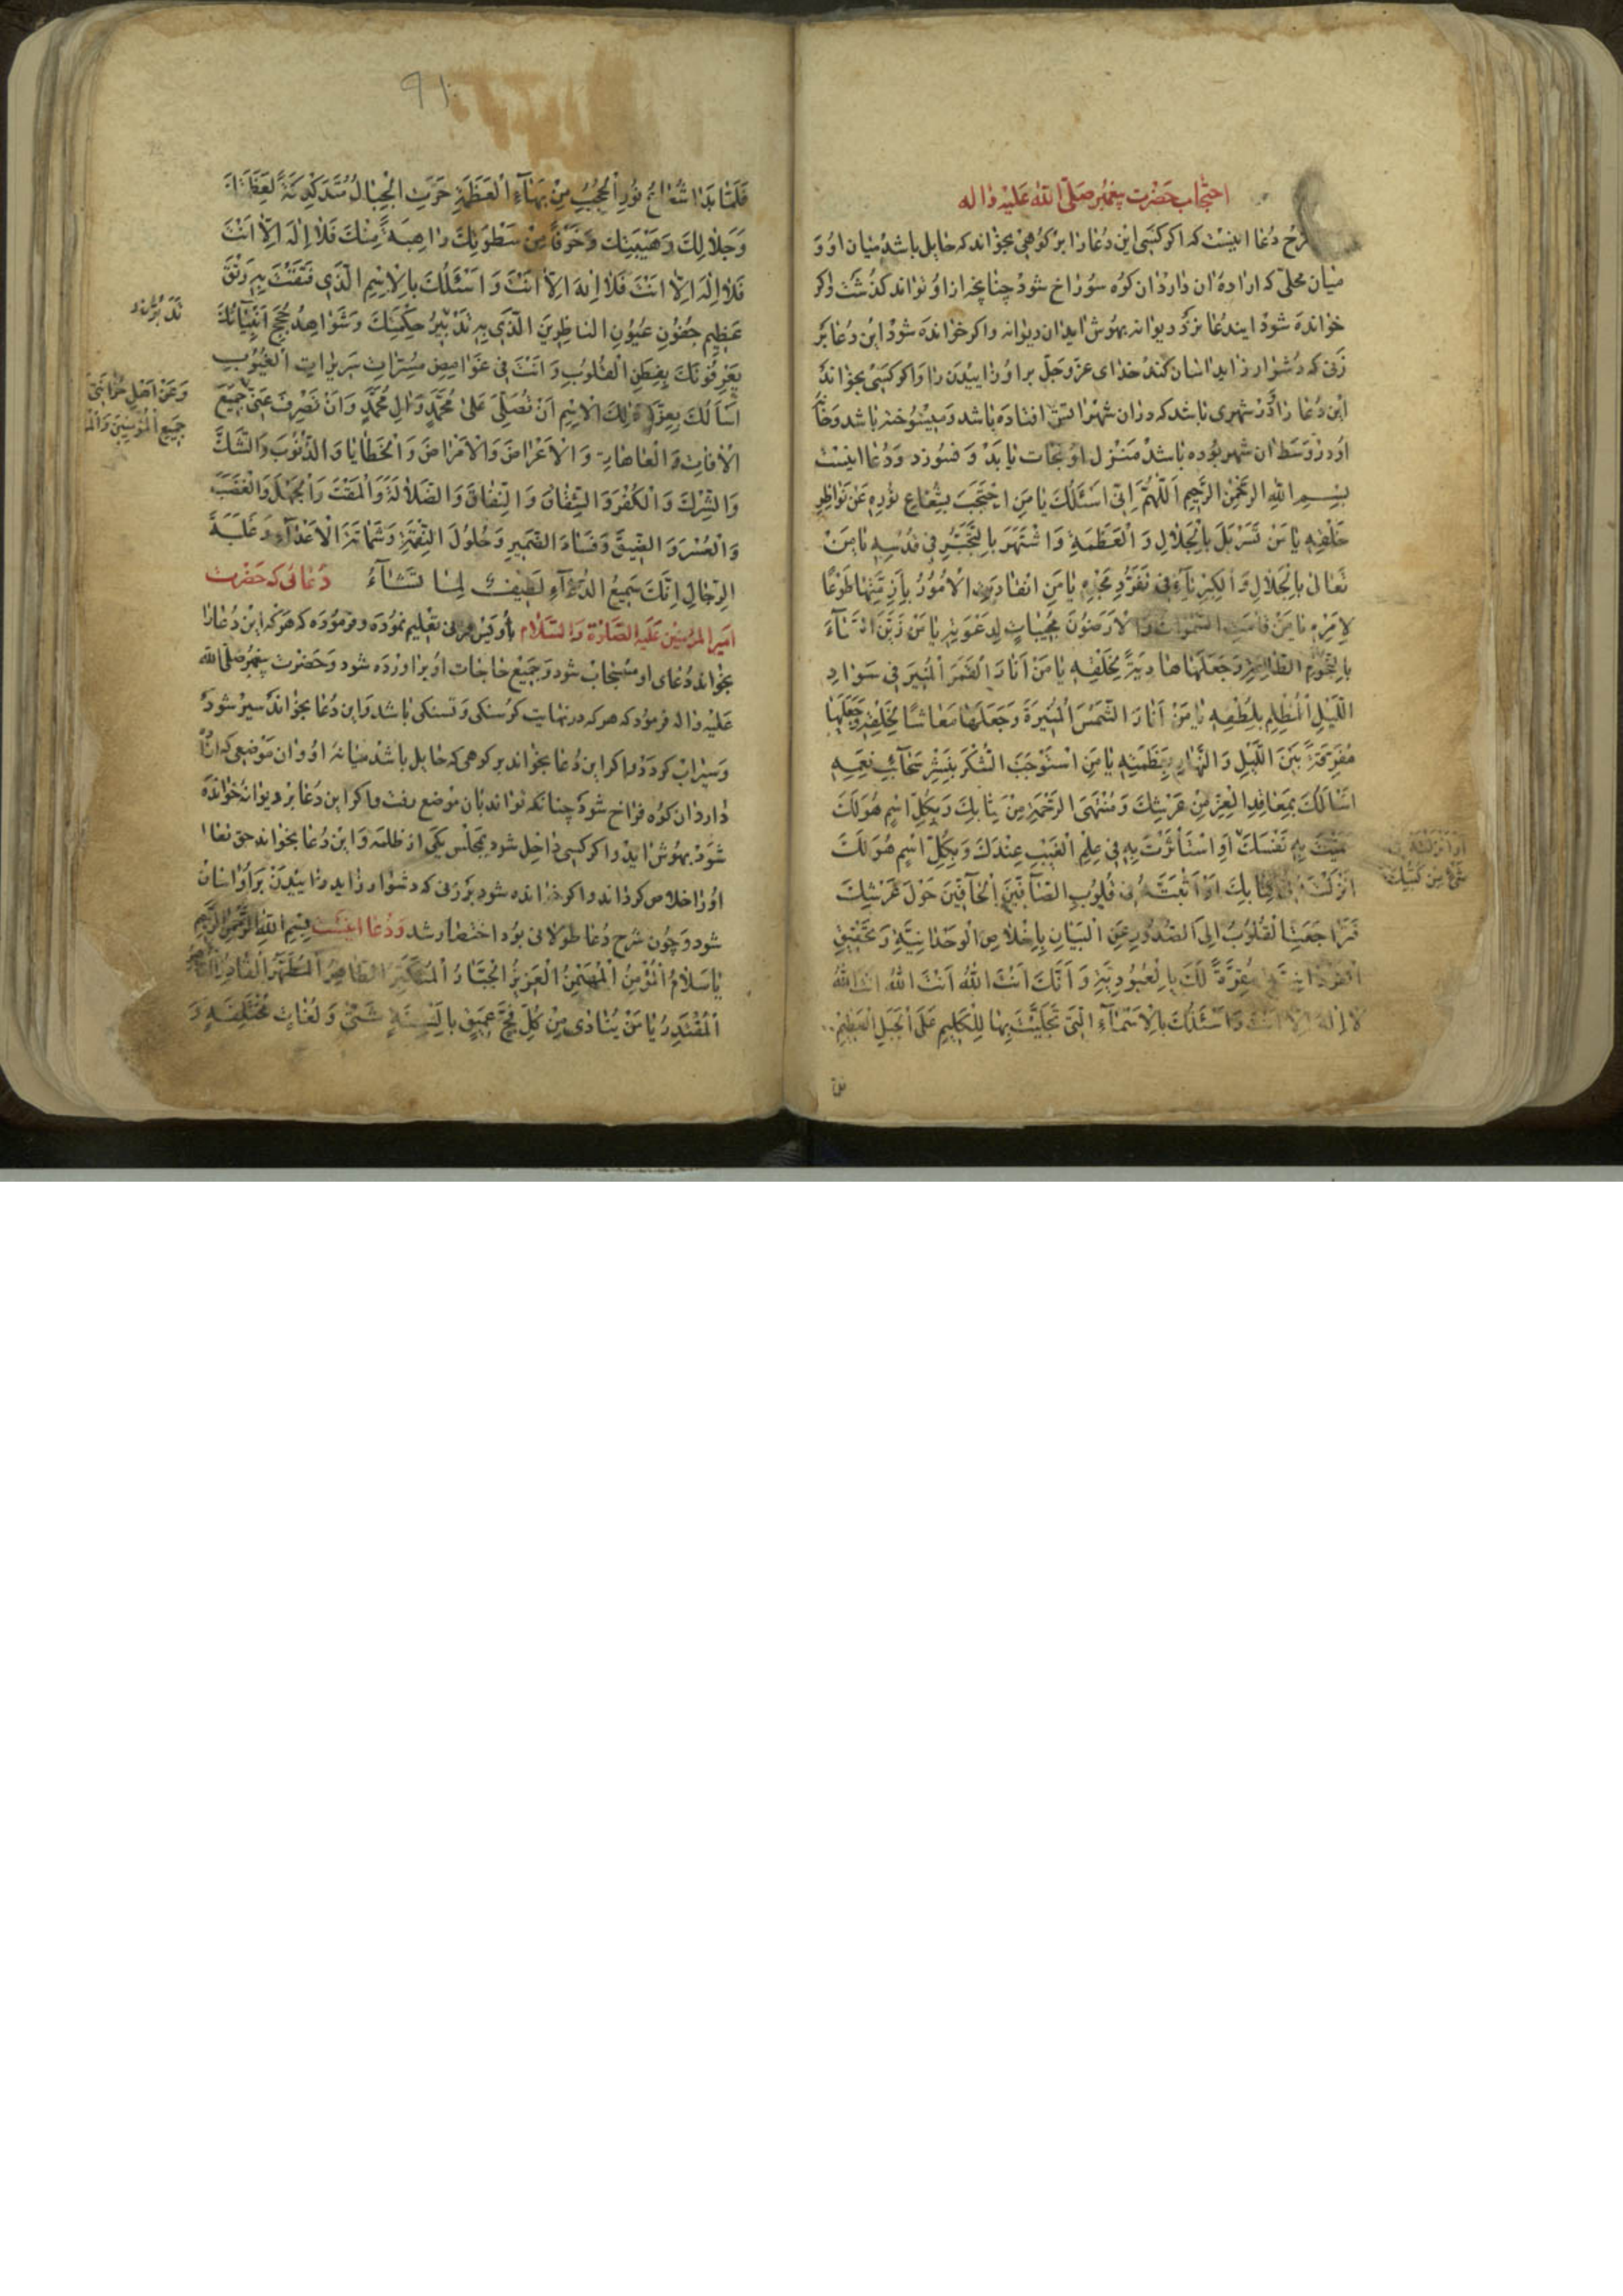 احتجاب حضرت پیغمبر صلّی اللّه علیه واله
شرح دعا اینست که اکر کسی این دعا را بر کوهی بخواند که حایل باشد میان او و
میان محلّی که اراده ان دارد ان کوه سوراخ شود چنانچه از او تواند کذشت واکر
خوانده شود ایندعا نزد دیوانه بهوش اید ان دیوانه واکر خوانده شود این دعا بر
زنی که دشوار زاید اسان کند خدای عزّ وجلّ بر او زاییدن را واکر کسی بخواند
این دعا را در شهری باشد که در ان شهر اتش افتاده باشد و میسوخته باشد وخانه
او در وسط ان شهر بوده باشد منزل او نجات یابد و نسوزد و دعا اینست
بسم الله الرحمن الرحیم اَللّهُمَّ اِنّی اَسْئَلُكَ یا مَنِ احْتَجَبَ بِشُعاعِ نُورِهِ عَنْ نَواظِرِ
خَلْقِهِ یا مَنْ تَسَرْبَلَ بِالْجَلالِ وَ الْعَظَمَةِ وَ اشْتَهَرَ بِالتَّجَبُّرِ فی قُدْسِهِ یا مَنْ
تَعالی بِالْجَلالِ وَ الْكِبْرِیآءِ فی تَفَرُّدِ مَجْدِهِ یا مَنِ انْقادَتِ الْاُمُورُ بِاَزِمَّتِها طَوْعًا
لِاَمْرِهِ یا مَنْ قامَتِ السَّمواتُ وَ الْاَرَضُونَ مُجیباتٍ لِدَعْوَتِهِ یا مَنْ زَیَّنَ السَّمآءَ
بِالنُّجُومِ الطّالِعَةِ وَ جَعَلَها هادِیَةً لِخَلْقِهِ یا مَنْ اَنارَ الْقَمَرَ الْمُنیرَ فی سَوادِ
اللَّیْلِ الْمُظْلِمِ بِلُطْفِهِ یا مَنْ اَنارَ الشَّمْسَ الْمُنیرَةَ وَ جَعَلَها مَعاشًا لِخَلْقِهِ وَ جَعَلَها
مُفَرِّقَةً بَیْنَ اللَّیْلِ وَ النَّهارِ بِعَظَمَتِهِ یا مَنِ اسْتَوْجَبَ الشُّكْرَ بِنَشْرِ سَحآئِبِ نِعَمِهِ
اَسْاَلُكَ بِمَعاقِدِ الْعِزِّ مِنْ عَرْشِكَ وَ مُنْتَهَی الرَّحْمَةِ مِنْ كِتابِكَ وَ بِكُلِّ اسْمٍ هُوَ لَكَ
سَمَّیْتَ بِهِ نَفْسَكَ اَوِ اسْتَأْثَرْتَ بِهِ فی عِلْمِ الْغَیْبِ عِنْدَكَ وَ بِكُلِّ اسْمٍ هُوَ لَكَ
اَنْزَلْتَهُ فی كِتابِكَ اَوْ اَثْبَتَّهُ فی قُلُوبِ الصّآفّینَ الْحآفّینَ حَوْلَ عَرْشِكَ
فَتَراجَعَتِ الْقُلُوبُ اِلَی الصُّدُورِ عَنِ الْبَیانِ بِاِخْلاصِ الْوَحْدانِیَّةِ وَ تَحْقیقِ
الْفَرْدانِیَّةِ مُقِرَّةً لَكَ بِالْعُبُودِیَّةِ وَ اَنَّكَ اَنْتَ اللّهُ اَنْتَ اللّهُ اَنْتَ اللّهُ
لا اِلهَ اِلّا اَنْتَ وَ اَسْئَلُكَ بِالْاَسْمآءِ الَّتی تَجَلَّیْتَ بِها لِلْكَلیمِ عَلَی الْجَبَلِ الْعَظیمِ
اَوْ اَنْزَلْتَهُ فی
شَیْءٍ مِنْ كُتُبِكَ
فَلَمّا بَدا شُعاعُ نُورِ الْحُجُبِ مِنْ بَهآءِ الْعَظَمَةِ خَرَّتِ الْجِبالُ مُتَدَكْدِكَةً لِعَظَمَتِكَ
وَ جَلالِكَ وَ هَیْبَتِكَ وَ خَوْفًا مِنْ سَطْوَتِكَ راهِبَةً مِنْكَ فَلا اِلهَ اِلّا اَنْتَ
فَلا اِلهَ اِلّا اَنْتَ فَلا اِلهَ اِلّا اَنْتَ وَ اَسْئَلُكَ بِالْاِسْمِ الَّذی فَتَقْتَ بِهِ رَتْقَ
عَظیمِ جُفُونِ عُیُونِ النّاظِرینَ الَّذی بِهِ تَدْبیرُ حِكْمَتِكَ وَ شَواهِدُ حُجَجِ اَنْبِیآئِكَ
یَعْرِفُونَكَ بِفِطَنِ الْقُلُوبِ وَ اَنْتَ فی غَوامِضِ مُسِرّاتِ سَریراتِ الْغُیُوبِ
اَسْاَلُكَ بِعِزَّةِ ذلِكَ الْاِسْمِ اَنْ تُصَلِّیَ عَلی مُحَمَّدٍ وَ الِ مُحَمَّدٍ وَ اَنْ تَصْرِفَ عَنّی جَمیعَ
الْافاتِ وَ الْعاهاتِ وَ الْاَعْراضَ وَ الْاَمْراضَ وَ الْخَطایا وَ الذُّنُوبَ وَ الشَّكَّ
وَ الشِّرْكَ وَ الْكُفْرَ وَ الشِّقاقَ وَ النِّفاقَ وَ الضَّلالَةَ وَ الْمَقْتَ وَ الْجَهْلَ وَ الْغَضَبَ
وَ الْعُسْرَ وَ الضّیقَ وَ فَسادَ الضَّمیرِ وَ حُلُولَ النِّقْمَةِ وَ شَماتَةَ الْاَعْدآءِ وَ غَلَبَةَ
الرِّجالِ اِنَّكَ سَمیعُ الدُّعآءِ لَطیفٌ لِما تَشآءُ دعائی که حضرت
امیر المؤمنین علیه الصّلوة والسّلام باویس قرنی تعلیم نموده وفرموده که هرکه این دعا را
بخواند دعای او مستجاب شود وجمیع حاجات او براورده شود وحضرت پیغمبر صلّی الله
علیه واله فرمود که هر که در نهایت کرسنکی وتشنکی باشد واین دعا بخواند سیر شود
وسیراب کردد واکر این دعا بخواند بر کوهی که حایل باشد میانه او وان موضعی که اراده
دارد ان کوه فراخ شود چنانکه تواند بان موضع رفت واکر این دعا بر دیوانه خوانده
شود بهوش اید واکر کسی داخل شود بمجلس یکی از ظلمه واین دعا بخواند حق تعالی
او را خلاص کرداند واکر خوانده شود بر زنی که دشوار زاید زاییدن بر او اسان
شود وچون شرح دعا طولانی بود اختصار شد ودعا اینست بسم اللّه الرّحمن الرّحیم
یا سَلامُ الْمُؤْمِنُ الْمُهَیْمِنُ الْعَزیزُ الْجَبّارُ الْمُتَكَبِّرُ الطّاهِرُ الْمُطَهِّرُ الْقاهِرُ الْقادِرُ
الْمُقْتَدِرُ یا مَنْ یُنادی مِنْ كُلِّ فَجٍّ عَمیقٍ بِاَلْسِنَةٍ شَتّی وَ لُغاتٍ مُخْتَلِفَةٍ وَ
وَ عَنْ اَهْلِ حُزانَتی
جَمیعِ الْمُؤْمِنینَ